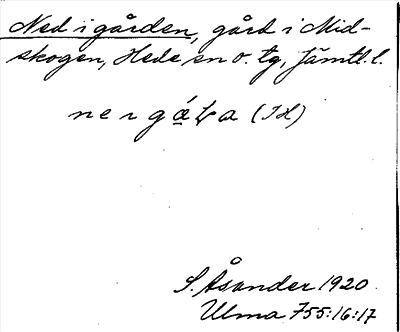 Ned i gården, gård i Mid-
skogen, Hede sn o. tg, Jämtl. l.
(IH)
S. Åsander 1920
Ulma 755:16:17